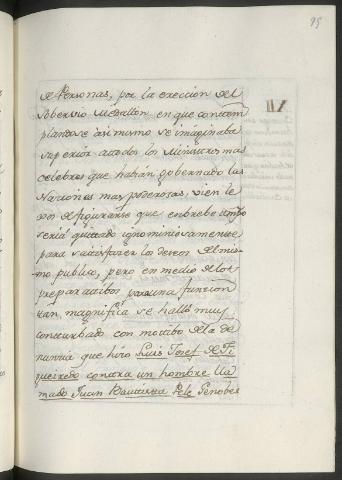 95
de Personas, por la ereccion del
Sobervio Medallon, en que contem
plandose asi mismo se imaginaba
superior atodos los Ministros mas
celebres que habian governado las
Naciones mas poderosas, vien le
xos de figurarse que enbrebe tiempo
seria quitado ignominiosamente
para satisfazer los deseos del mis-
mo publico, pero en medio de los
preparatibos para una funcion
tan magnifica se halló muy
consturbado con motibo de la de
nuncia que hizo Luis Josef de Fi
gueiredo contra un hombre lla
mado Juan Bautista Pele Genobes